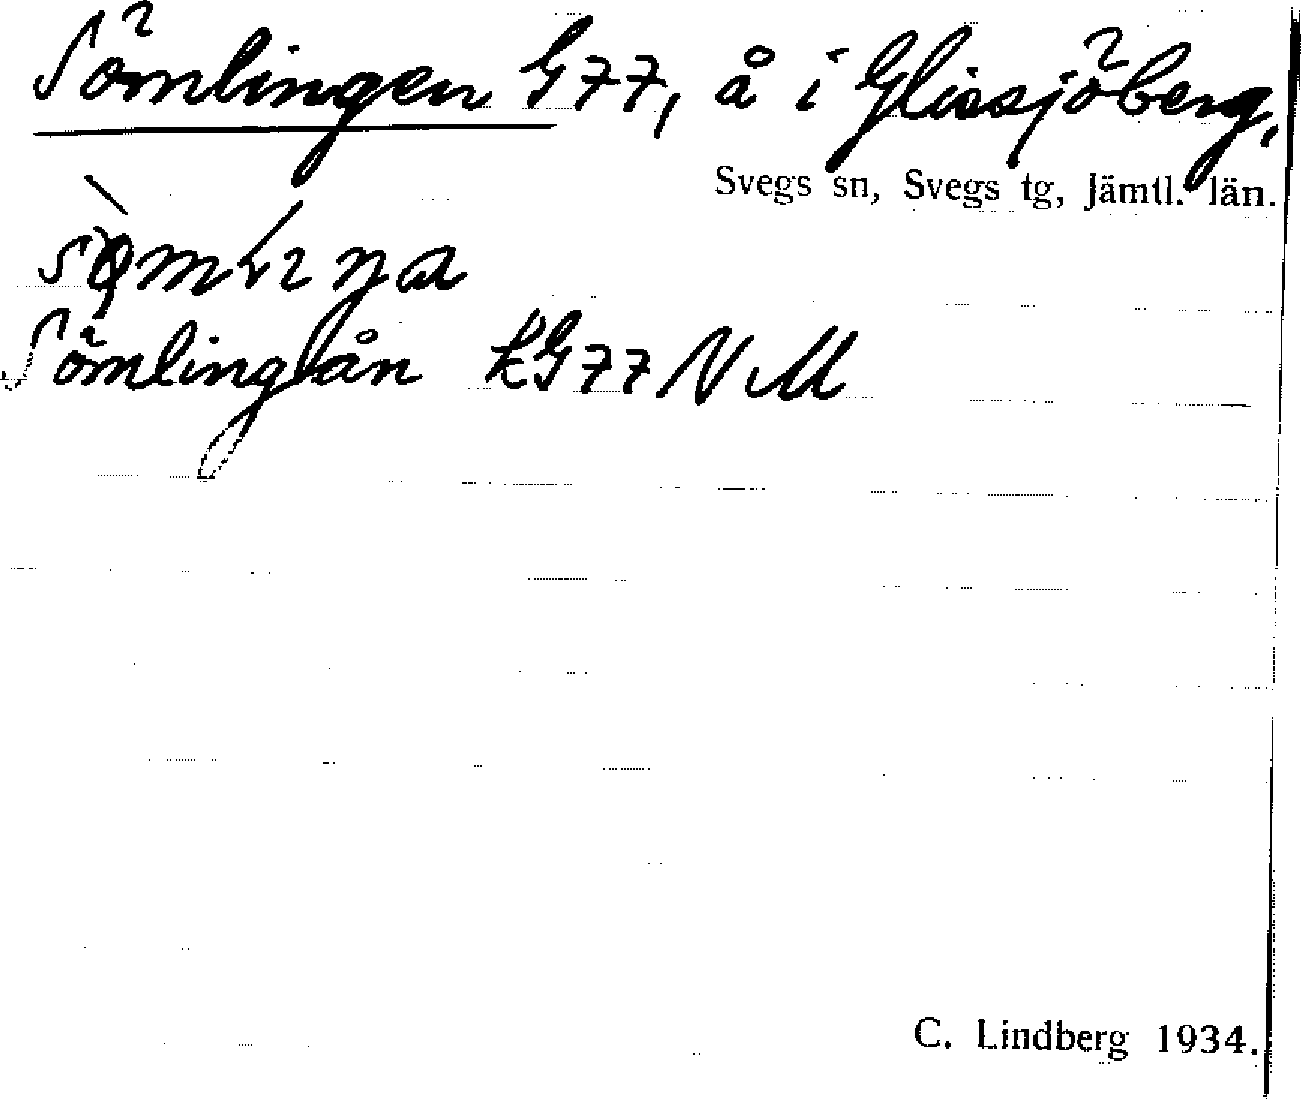 Sömlingen G77, å i Glissjöberg,
Svegs sn, Svegs tg, Jämtl. län.
Sömlingån kG77 NM
C. Lindberg 1934.